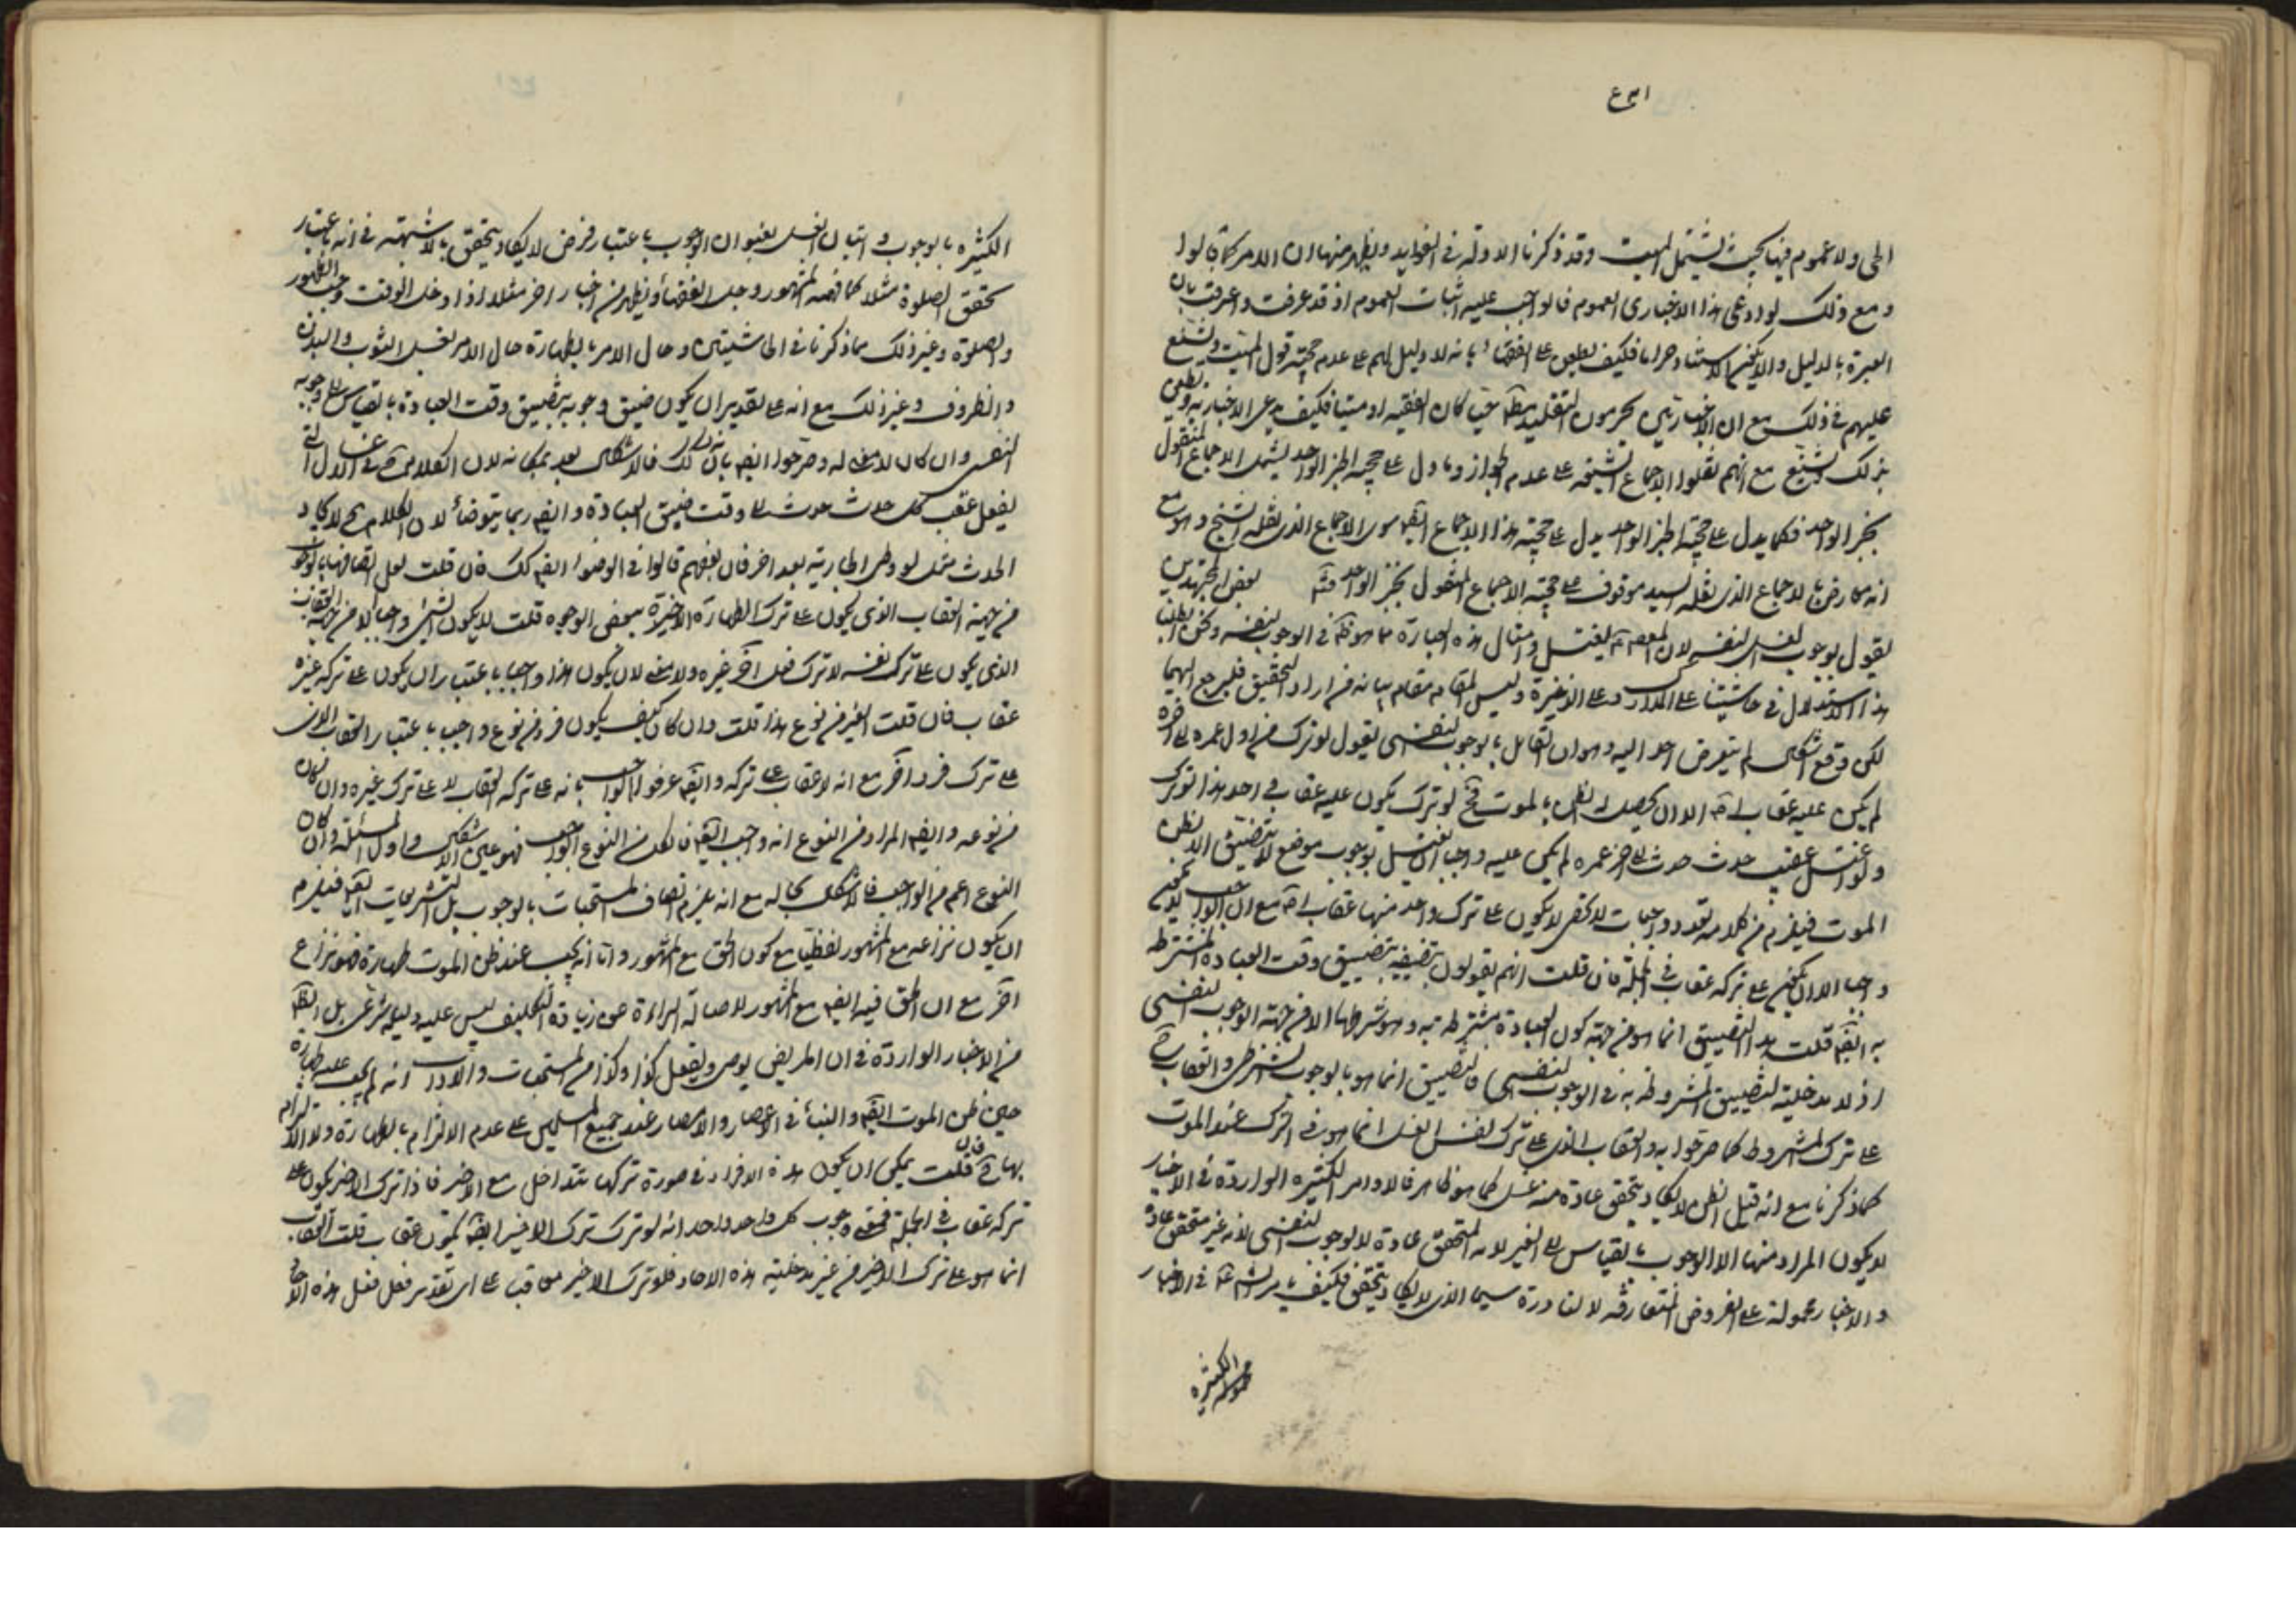 الحى ولا عموم فيها بحيث يشتمل الميت وقد ذكرنا الادلة فى الفوايد ويظهر منها ان الامر كما قالوا
ومع ذلك لو ادعى هذا الاخبارى العموم فالواجب عليه اثبات العموم اذ قد عرفت واعرفت بان
العبرة بالدليل والا يكون الاستناد حراما فكيف يطعن على الفقهاء بانه لا دليل لهم على عدم حجية قول الميت ويشنع
عليهم فى ذلك مع ان الاخباريين يحرمون التقليد مطلقا حيا كان الفقيه او ميتا فكيف يدعى الاخبارية ويطعن
بذلك يشنع مع انهم نقلوا الاجماع الشيخ على عدم الجواز وما دل على حجية الخبر الواحد يشمل الاجماع المنقول
بخبر الواحد فكما يدل على حجية الخبر الواحد يدل على حجية هذا الاجماع ايضا سوى الاجماع الذى نقله الشيخ
انه معارض بالاجماع الذى نقله السيد موقوف على حجية الاجماع المنقول بخبر الواحد منه بعض المجتهدين
يقول بوجوب الغسل لنفسه لان يغتسل وامثال هذه العبارة مما هو ظ فى الوجوب لنفسه ونحن ابطلنا
هذا الاستدلال فى حاشيتنا على المدارك وعلى الذخيرة وليس المقام مقام بيانه فمن اراد التحقيق فليرجع اليهما
لكن وقع اشكال لم يتعرض احد اليه وهو ان القايل بالوجوب النفسى يقول لو ترك من اول عمره الى اخره
لم يكن عليه عقاب اصلا الا ان يحصل له الظن بالموت فح لو ترك يكون عليه عقاب واحد بهذا الترك
ولو اغتسل عقيب حدث حدث الى اخر عمره لم يكن عليه واجبا الغسل بوجوب موضع لتضييق الا بظن
الموت فيلزم من كلامه تعدد واجبات لا تحصى لا يكون على ترك واحد منها عقاب اصلا مع ان الواجب لا يكون
واجبا الا ان يكون على تركه عقاب فى الجملة فان قلت انهم يقولون بتضييقه بتضييق وقت العبادة المشترطة
به ايضا قلت هذا التضييق انما هو من جهة كون العبادة مشترطة به وهو شرطها الا من جهة الوجوب النفسى
اذ لا مدخلية لتضييق المشروطة به فى الوجوب النفسى والتضييق انما هو بالوجوب الشرطى والعقاب
على ترك المشروط كما صرحوا به والعقاب الذى على ترك نفس الغسل انما هو فى الترك عند الموت
كما ذكرنا مع انه قبل الظن لا يكاد يتحقق عادة منه غسل كما هو ظاهر فالاوامر الكثيرة الواردة فى الاخبار
لا يكون المراد منها الا الوجوب بالقياس الى الغير لانه المتحقق عادة لا الوجوب النفسى لانه غير متحقق عادة
والاخبار محمولة على الفروض المتعارفة لا النادرة سيما الذى لا يكاد يتحقق فكيف يامر الشرع فى الاخبار
الكثيرة
الكثيرة بالوجوب واتيان الغسل بعنوان الوجوب باعتبار فرض لا يكاد يتحقق بلا شبهة فى انه باعتبار
تحقق الصلوة مثلا كما فهمه المشهور وجل الفقهاء ويظهر من اخبار اخر مثلا اذا دخل الوقت وجب الطهور
والصلوة وغير ذلك مما ذكرنا فى الحاشيتين وحال الامر بالطهارة حال الامر بغسل الثوب والبدن
والظروف وغير ذلك مع انه على تقدير ان يكون ضيق وجوبه بتضييق وقت العبادة بالقياس الى وجوبه
النفسى وان كان لا معنى له وصرحوا ايضا بان ذلك كك فالاشكال بعد بمكانه لان الكلام فى غسل الذى
يفعل عقب كل حدث حدث الى وقت ضيق العبادة وايضا ربما يتوضأ لان الكلام ح لا يكاد
الحدث مثل لو وطى الجارية بعد اخر فان بعضهم قالوا فى الوضوء ايضا كك فان قلت لعل اتصافها بالوجوب
من جهة العقاب الذى يكون على ترك الطهارة الاخيرة ببعض الوجوه قلت لا يكون الشئ واجبا الا من جهة العقاب
الذى يكون على ترك نفسه لا ترك فعل اخر غيره ولا معنى لان يكون هذا واجبا باعتبار ان يكون على تركه غيره
عقاب فان قلت الغير من نوع هذا قلت وان كان كيف يكون فرد من نوع واجبا باعتبار العقاب الذى
على ترك فرد اخر مع انه لا عقاب على تركه وايضا عرفوا الواجب بانه على تركه العقاب لا على ترك غيره وان كان
من نوعه وايضا المراد من النوع انه واجب ايضا فالكل من النوع الواجب فهو عين الاشكال واول المسئلة وان كان
النوع اعم من الواجب فالاشكال بحاله مع انه يلزم اتصاف المستحبات بالوجوب بل التشريعيات ايضا فيلزم
ان يكون نزاعه مع المشهور لفظيا مع كون الحق مع المشهور واما انه يجب عند ظن الموت طهارة فهو نزاع
اخر مع ان الحق فيه ايضا مع المشهور لاصالة البراءة عن زيادة التكليف ليس عليه دليل شرعى بل الظ
من الاخبار الواردة فى ان المريض يوصى ويفعل كذا وكذا من المستحبات والاداب انه لم يجب عليه طهارة
حين ظن الموت ايضا والبناء فى الاعصار والامصار عند جميع المسلمين على عدم الالزام بالطهارة ولا الالتزام
بها ح فان قلت يمكن ان يكون هذه الافراد فى صورة تركها تتداخل مع الاخير فاذا ترك الاخير يكون على
تركه عقاب فى الجملة فمعنى وجوب كل واحد واحد انه لو ترك ترك الاخير ايضا يكون عقاب قلت العقاب
انما هو على ترك الاخير من غير مدخلية هذه الاحاد فلو ترك الاخير معاقب على اى تقدير فعل فعل هذه الاحاد